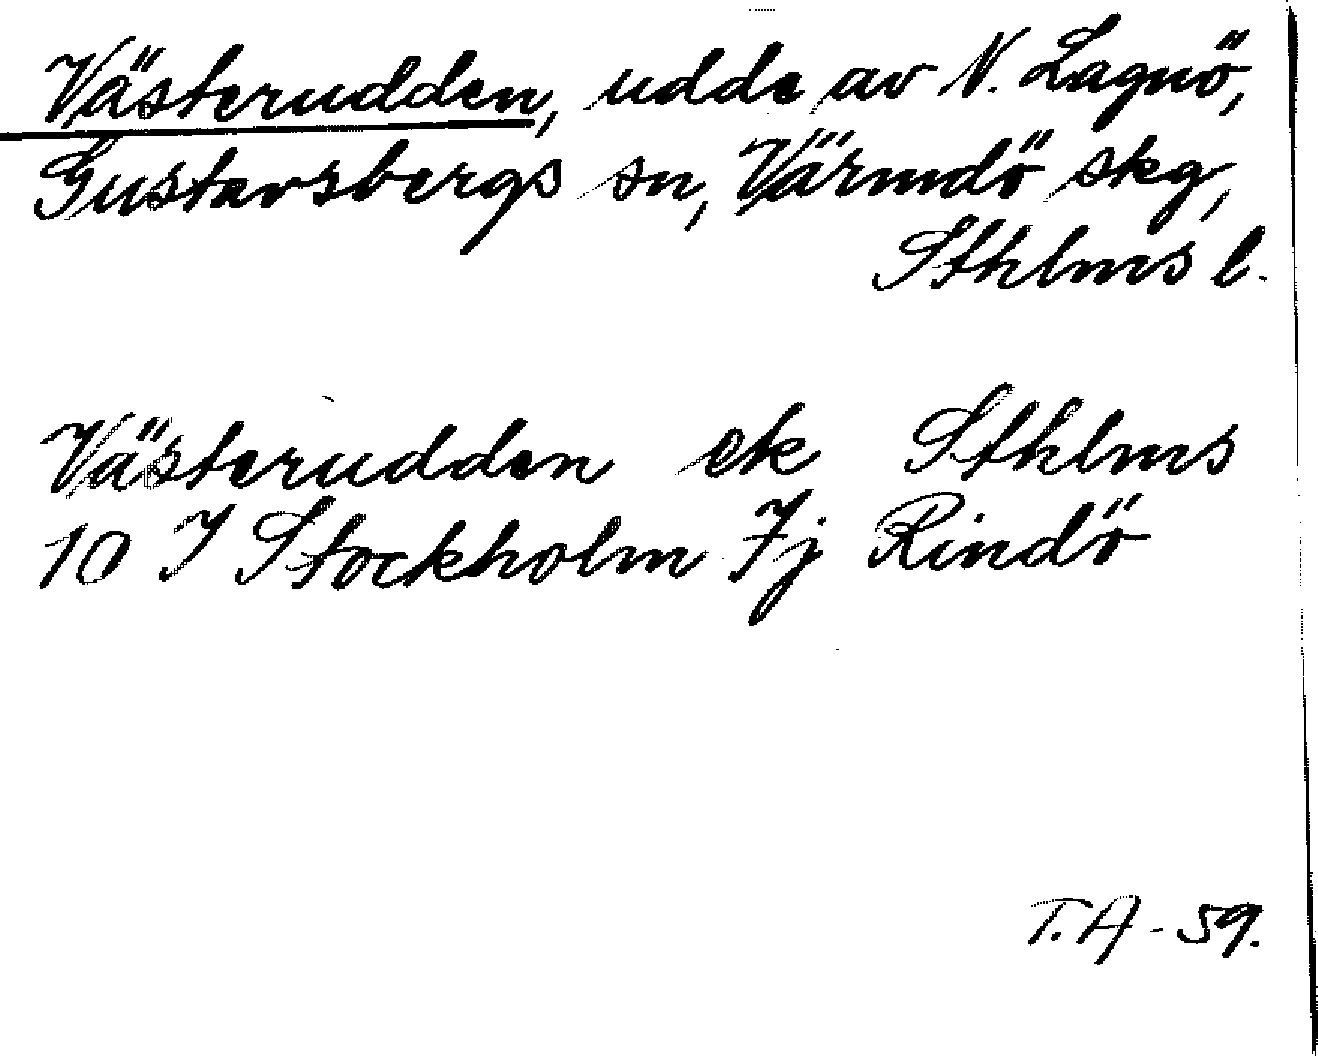 Västerudden, udde av N. Lagnö,
Gustavsbergs sn, Värmdö skg,
Sthlms l.
Västerudden ek Sthlms
10 I Stockholm 7j Rindö
T.A - 59.